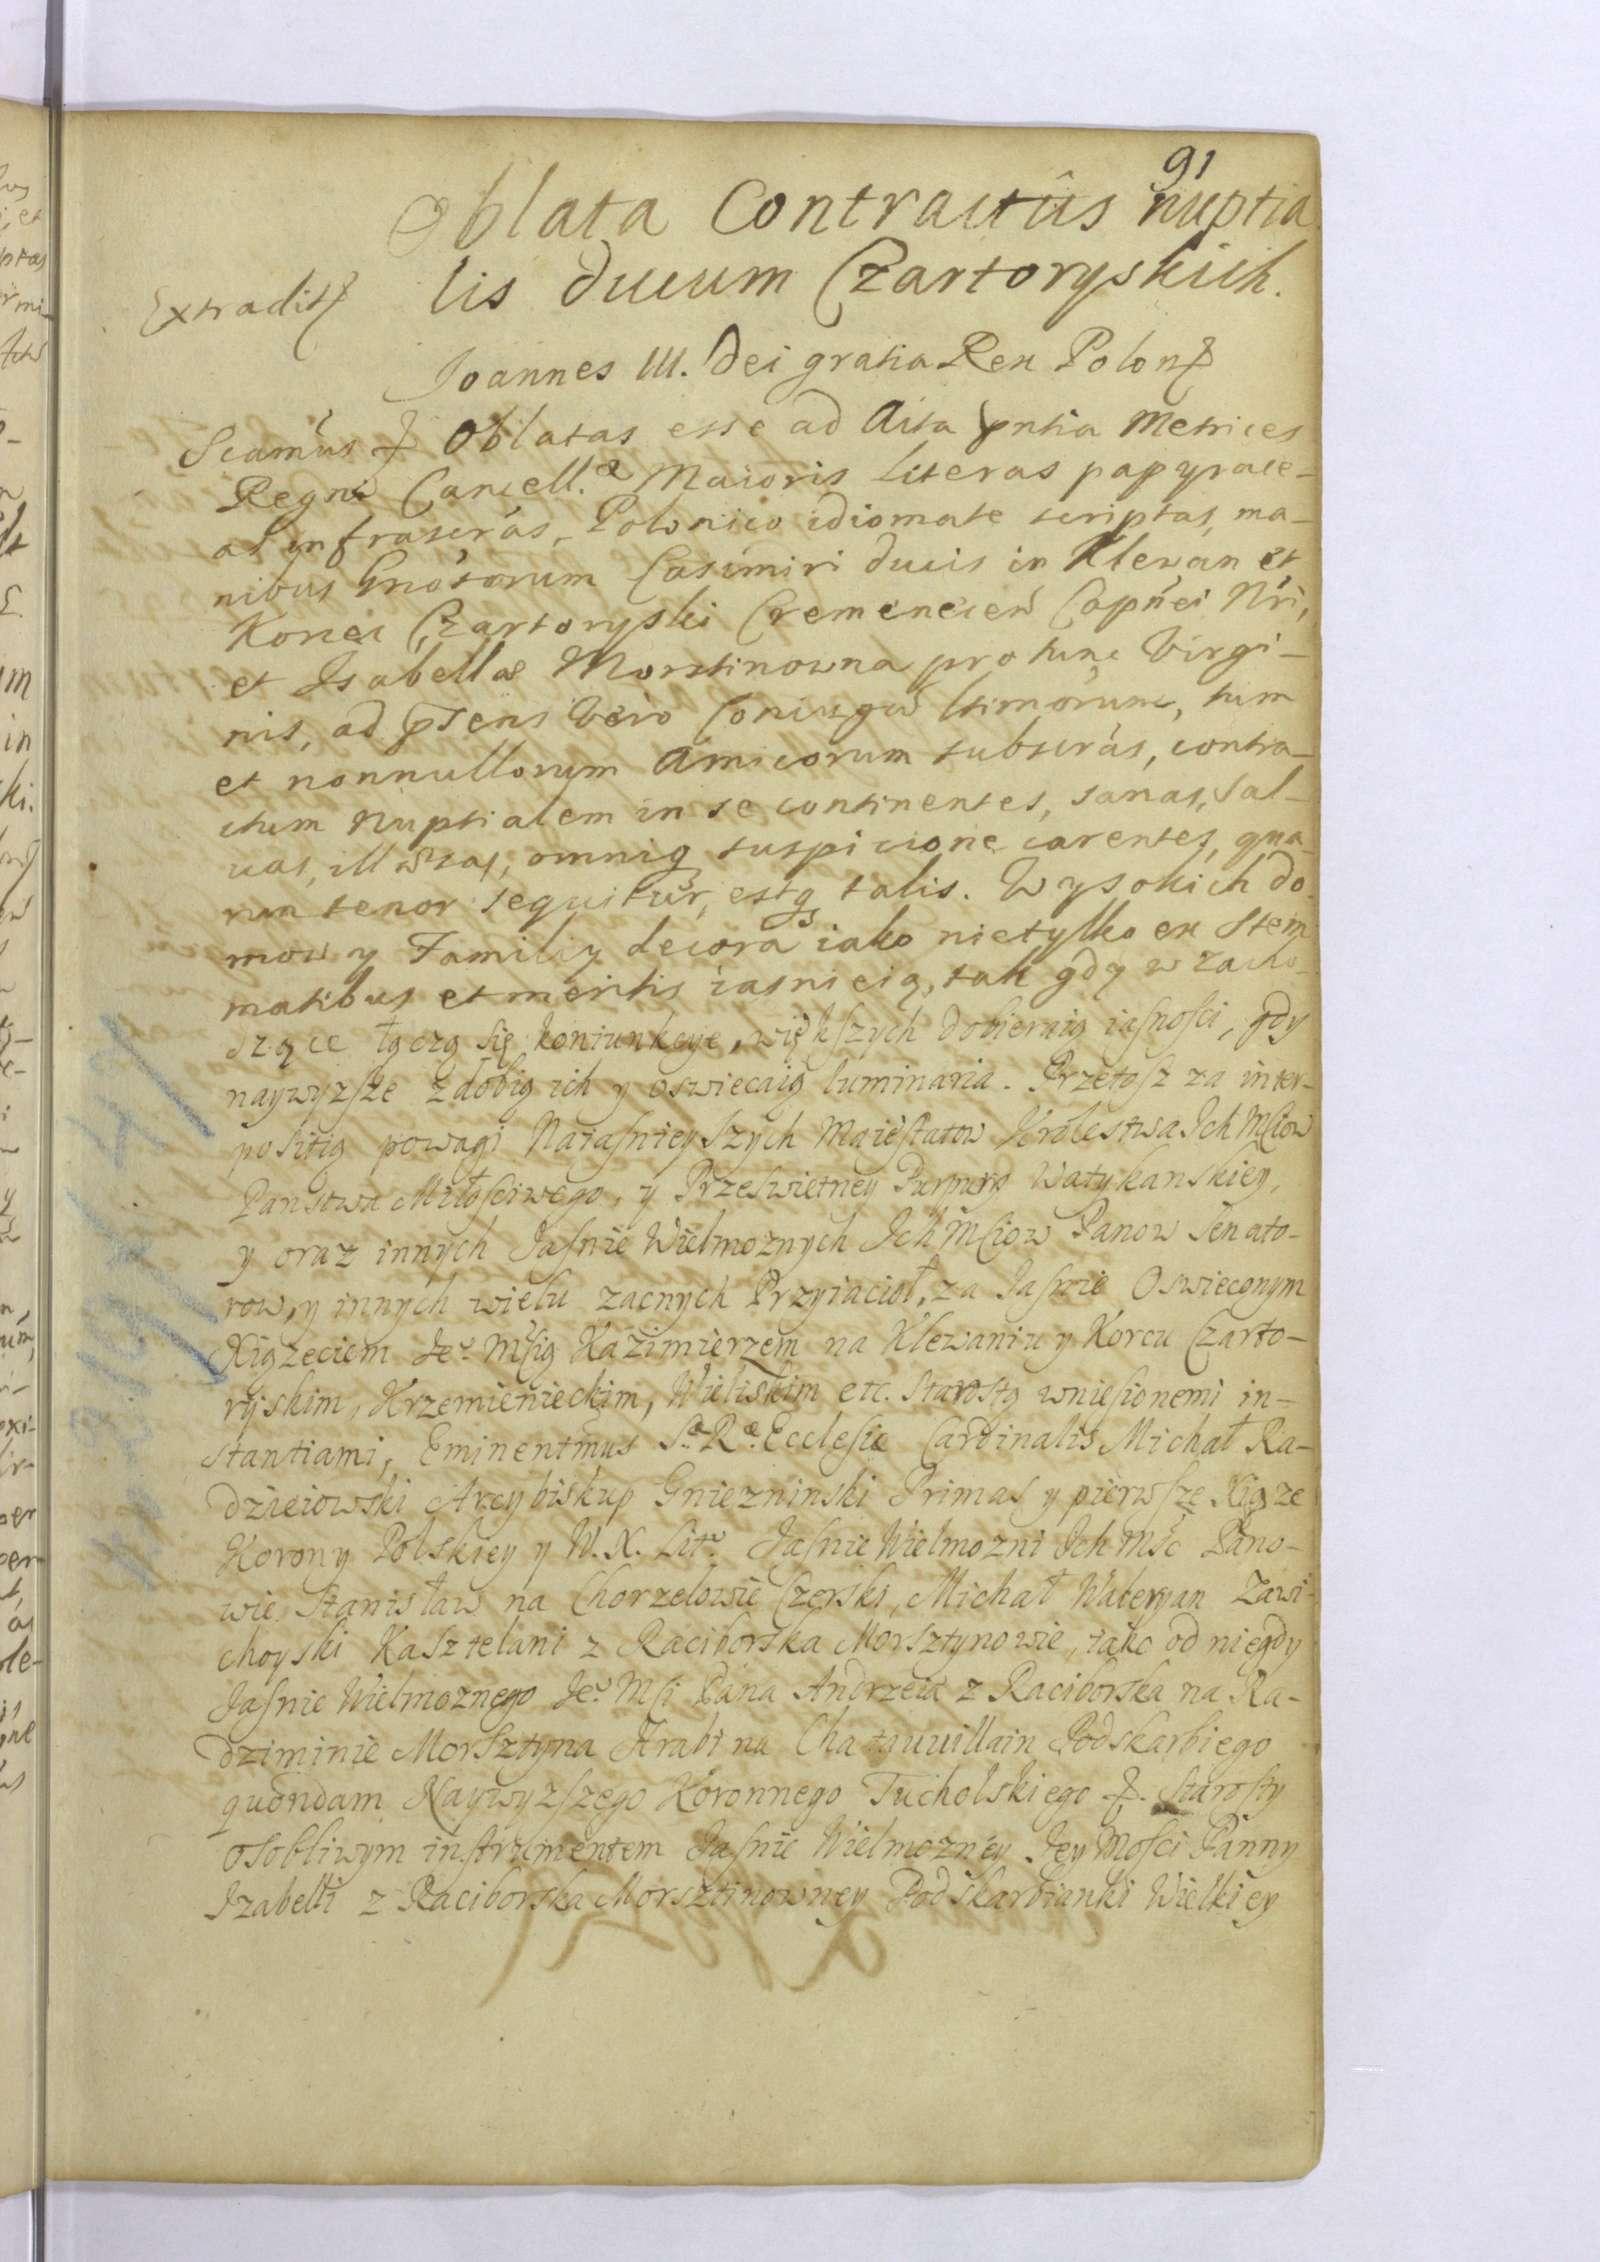 91
Oblata Contractûs nuptia
lis ducum Czartoryskich.
Extradit
Joannes III. Dei gratia Rex Polon
Seamus Oblatas esse ad Acta pntia Metrices
Regni Cancell.æ Maioris literas papyrace-
as infrascras, Polonico idiomate scriptas, ma-
nibus Gnosorum Casimiri ducis in Klewan et
Korzec Czartoryski Cremenecen Capnei Nri,
et Isabellæ Morstinowna pro tunc Virgi-
nis, ad psens vero Coniugu ltimorum, tum
et nonnullorum Amicorum subscras, contra-
ctum Nuptialem in se continentes, sanas, sal-
uas, illæsas, omniq suspicione carentes, qua-
rum tenor sequitur, estq talis. Wysokich do
mow y Familiy decora iako nietylko ex Stem
matibus et meritis iasnieią, tak gdy w zacho-
dzące łączą się koniunkcye, większych dobieraią iasnosci, gdy
naywyzsze zdobią ich y oswiecaią luminaria. Przetosz za inter-
positią powagi Naiasnieyszych Maiestatow Krolestwa Ich Mciow
Panstwa Miłosciwego, y Przeswietney Purpury Watykanskiey,
y oraz innych Jasnie Wielmoznych Ich Mciow Panow Senato-
row, y innych wielu zacnych Przyiacioł, za Jasnie Oswieconym
Xiązeciem Je Mscią Kazimierzem na Klewaniu y Korcu Czarto-
ryskim, Krzemienieckim, Wieliskim etc. Starostą wniesionemi in-
stantiami, Eminentmus S.æ R.æ Ecclesiæ Cardinalis Michał Ra-
dzieiowski Arcybiskup Gniezninski Primas y pierwsze Xiąze
Korony Polskiey y W. X. Lit. Jasnie Wielmozni Ich Mśc Pano-
wie, Stanisław na Chorzelowie Czerski, Michał Waleryan Zawi-
choyski Kasztelani z Raciborska Morsztynowie, iako od niegdy
Jasnie Wielmoznego Je Mci Pana Andrzeia z Raciborska na Ra-
dziminie Morsztyna Hrabi na Chatauuillain Podskarbiego
quondam Naywyzszego Koronnego Tucholskiego Starosty
osobliwym instrumentem Jasnie Wielmozney Jey Mosci Panny
Izabelli z Raciborska Morsztinowney Podskarbianki Wielkiey